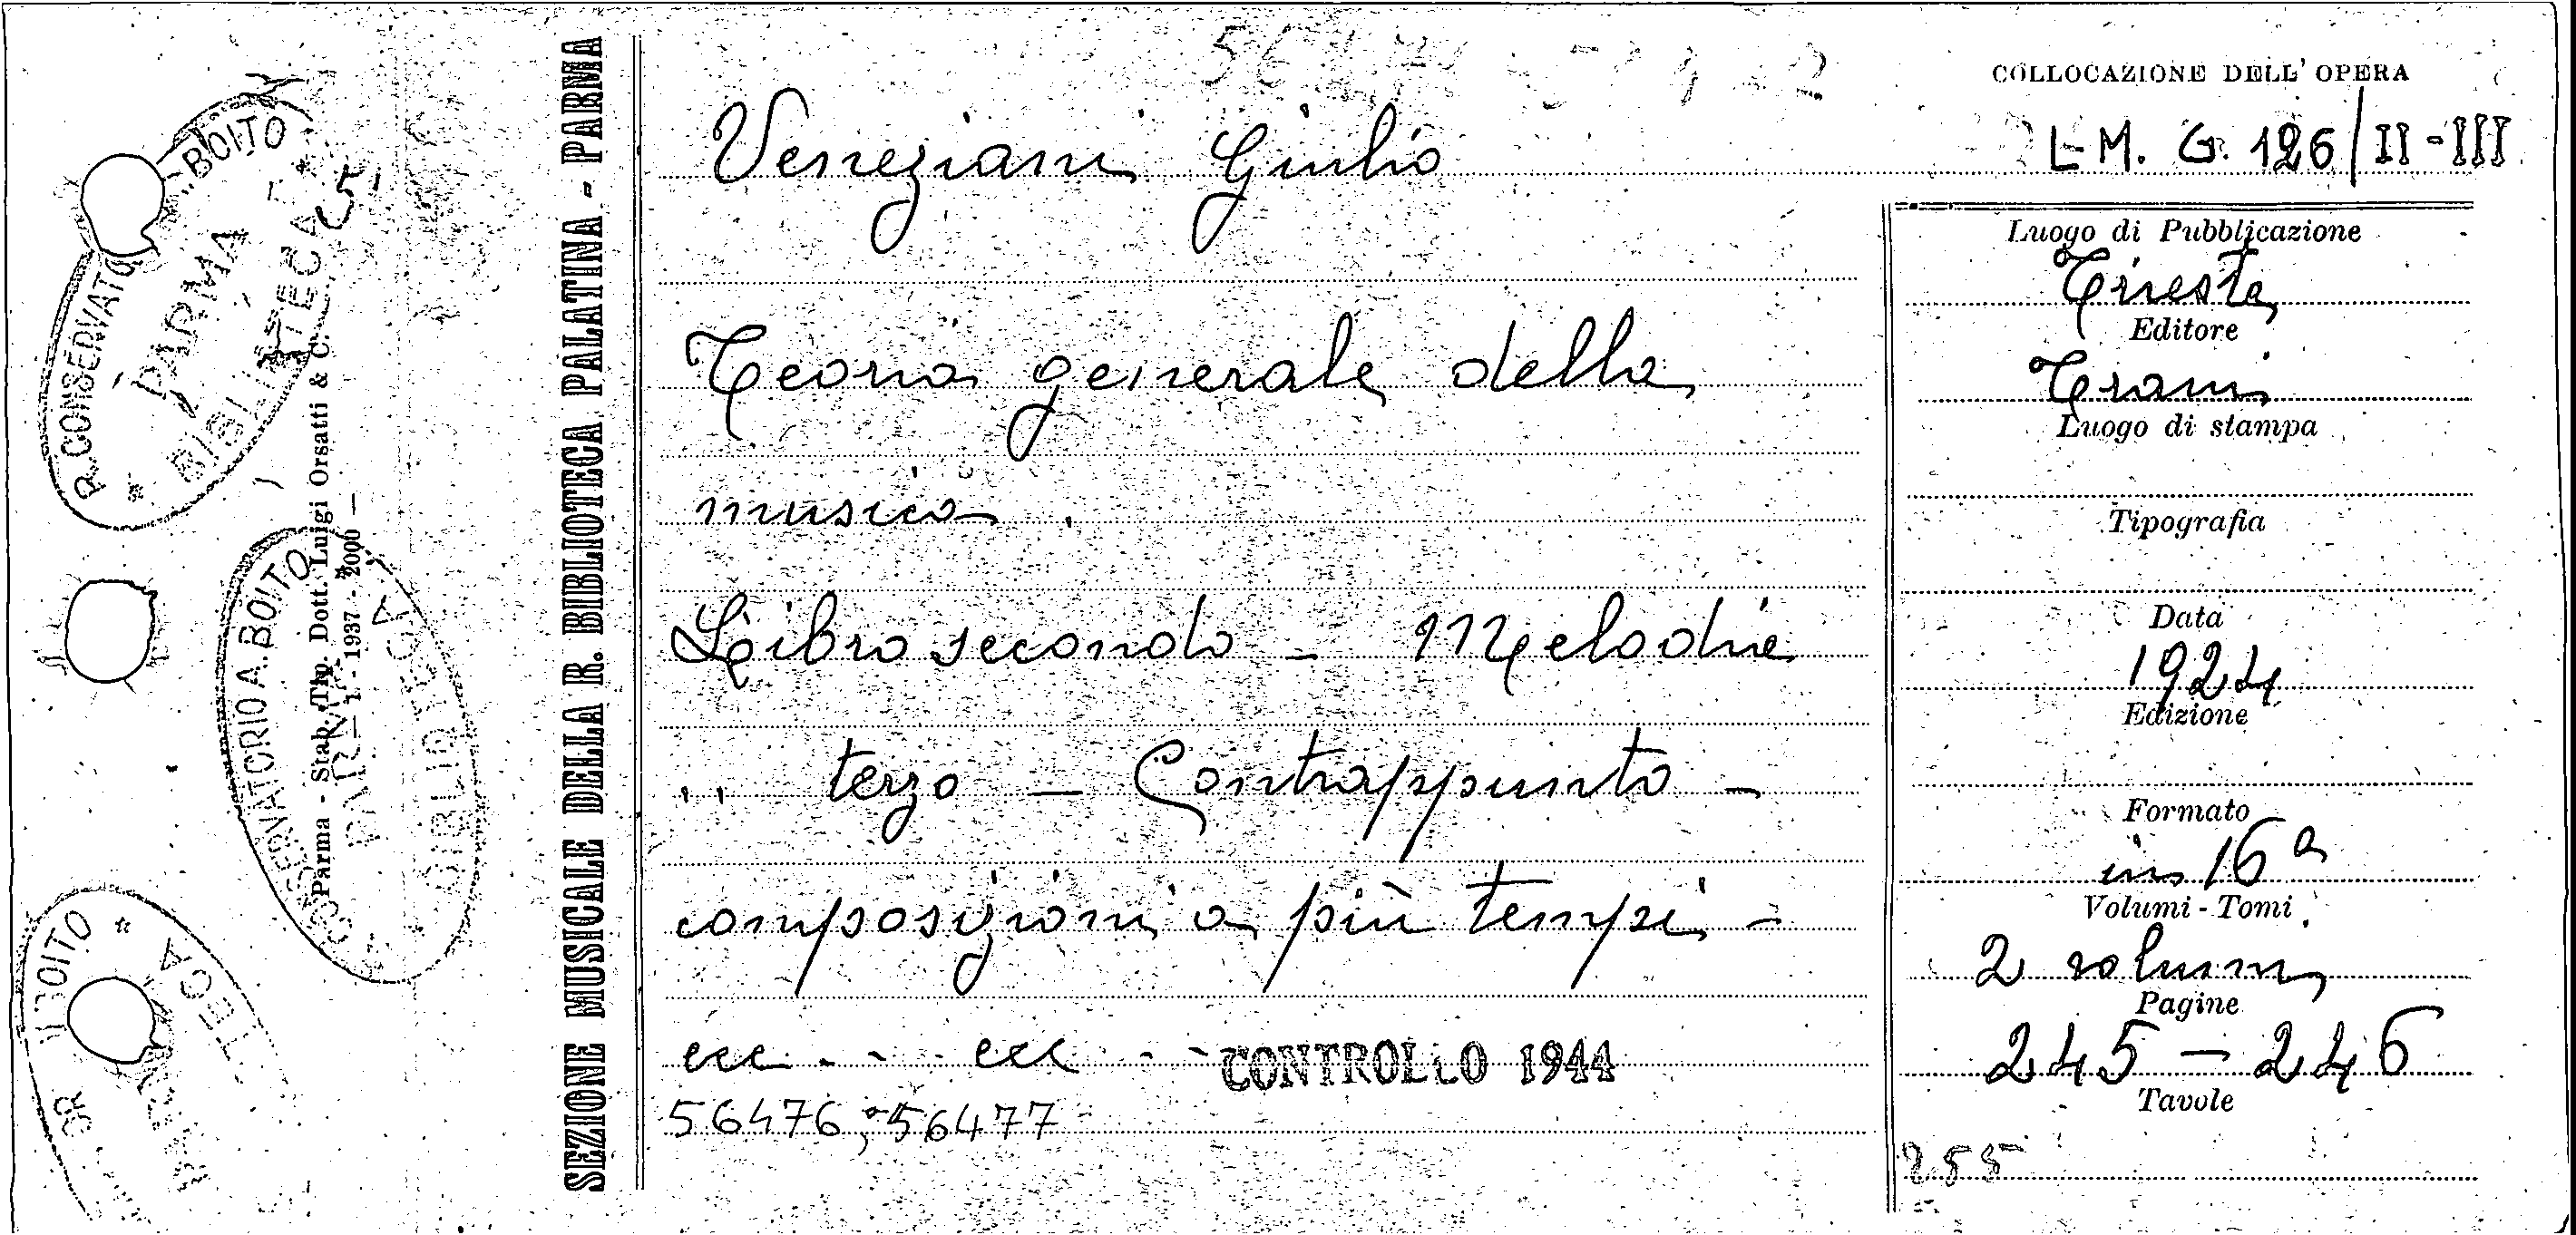 COLLOCAZIONE DELL' OPERA
L M. G. 126/II-III
Veneziani Giulio
Teoria generale della
musica.
Libro secondo - Melodie
" terzo - Contrappunto -
composizioni a più tempi -
ecc - - - ecc - - -
CONTROLLO 1944
56476, 56477
Luogo di Pubblicazione
Trieste
Editore
Trani
Luogo di stampa
Tipografia
Data
1924
Edizione
Formato
in 16a
Volumi - Tomi
2 volumi
Pagine
245 - 246
Tavole
255
SEZIONE MUSICALE DELLA R. BIBLIOTECA PALATINA - PARMA
Parma - Stab. Tip. Dott. Luigi Orsatti & C.
1 - 1937 - 2000 -
R. CONSERVATO A. BOITO
PARMA
CONSERVATORIO A. BOITO
PARMA
BIBLIOTECA
BOITO
TECA